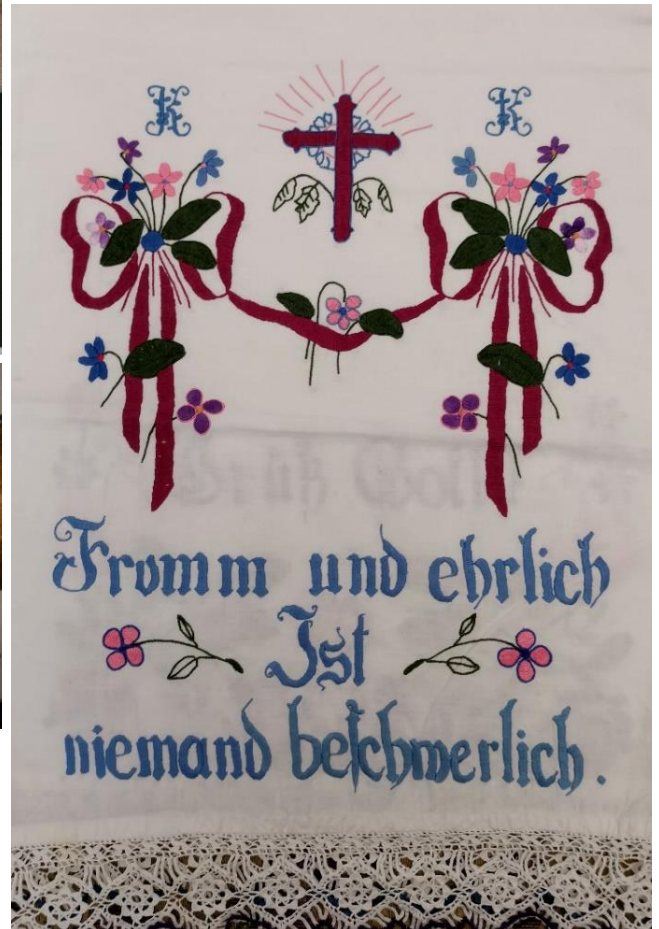 K K
Grüß Gott
Fromm und ehrlich
Ist
niemand beſchwerlich.